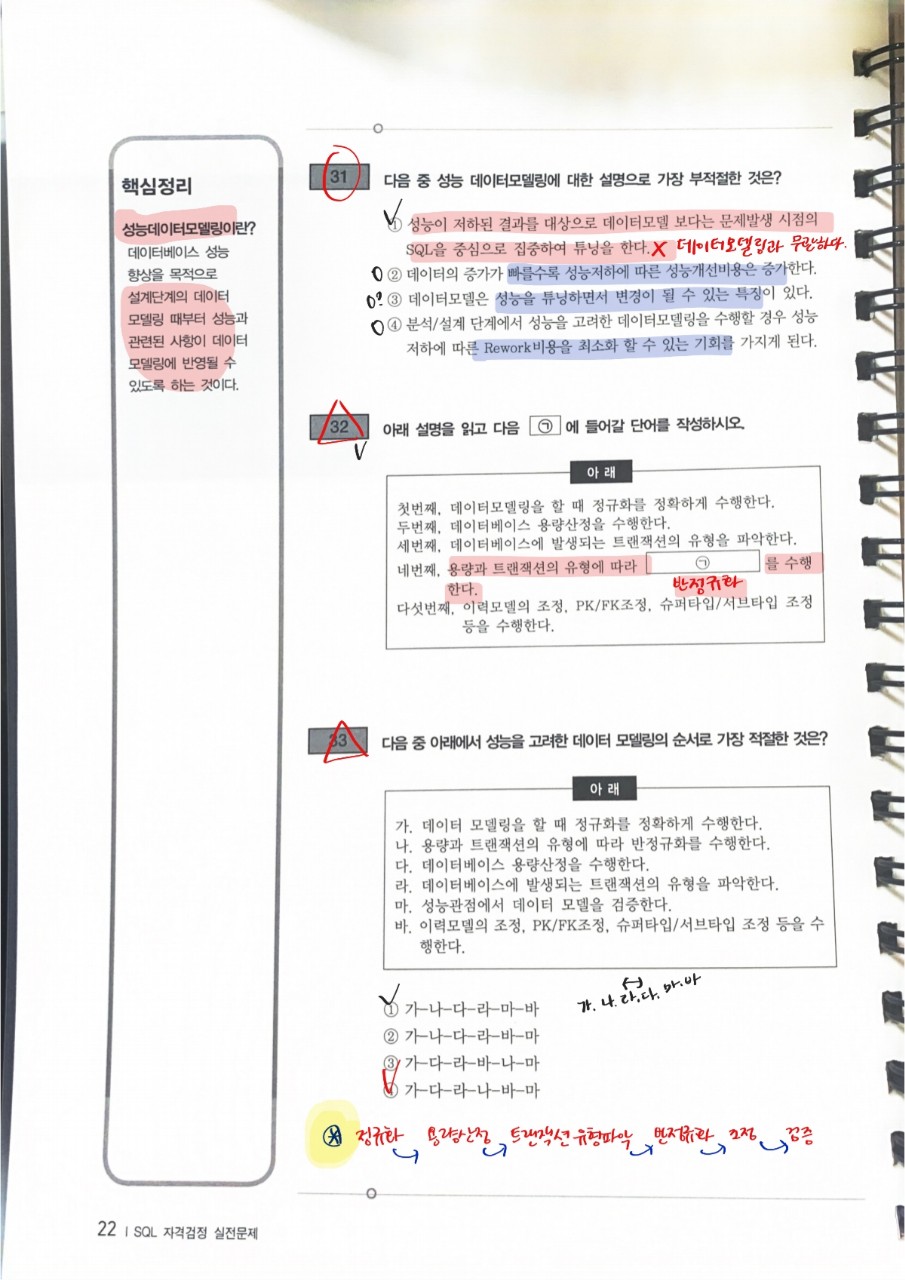 핵심정리
성능데이터모델링이란?
데이터베이스 성능
향상을 목적으로
설계단계의 데이터
모델링 때부터 성능과
관련된 사항이 데이터
모델링에 반영될 수
있도록 하는 것이다.
31 다음 중 성능 데이터모델링에 대한 설명으로 가장 부적절한 것은?
① 성능이 저하된 결과를 대상으로 데이터모델 보다는 문제발생 시점의
SQL을 중심으로 집중하여 튜닝을 한다. X 데이터모델링과 무관하다.
O ② 데이터의 증가가 빠를수록 성능저하에 따른 성능개선비용은 증가한다.
O? ③ 데이터모델은 성능을 튜닝하면서 변경이 될 수 있는 특징이 있다.
O ④ 분석/설계 단계에서 성능을 고려한 데이터모델링을 수행할 경우 성능
저하에 따른 Rework비용을 최소화 할 수 있는 기회를 가지게 된다.
32 아래 설명을 읽고 다음 ㉠ 에 들어갈 단어를 작성하시오.
아 래
첫번째, 데이터모델링을 할 때 정규화를 정확하게 수행한다.
두번째, 데이터베이스 용량산정을 수행한다.
세번째, 데이터베이스에 발생되는 트랜잭션의 유형을 파악한다.
네번째, 용량과 트랜잭션의 유형에 따라 ㉠ 를 수행
한다. 반정규화
다섯번째, 이력모델의 조정, PK/FK조정, 슈퍼타입/서브타입 조정
등을 수행한다.
33 다음 중 아래에서 성능을 고려한 데이터 모델링의 순서로 가장 적절한 것은?
아 래
가. 데이터 모델링을 할 때 정규화를 정확하게 수행한다.
나. 용량과 트랜잭션의 유형에 따라 반정규화를 수행한다.
다. 데이터베이스 용량산정을 수행한다.
라. 데이터베이스에 발생되는 트랜잭션의 유형을 파악한다.
마. 성능관점에서 데이터 모델을 검증한다.
바. 이력모델의 조정, PK/FK조정, 슈퍼타입/서브타입 조정 등을 수
행한다.
가. 나. 라. 다. 마. 바
① 가-나-다-라-마-바
② 가-나-다-라-바-마
③ 가-다-라-바-나-마
④ 가-다-라-나-바-마
정규화 용량산정 트랜잭션 유형파악 반정규화 조정 검증
22 | SQL 자격검정 실전문제